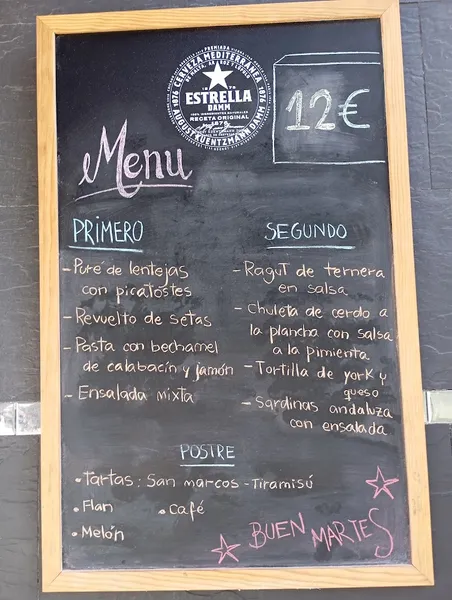 PREMIADA
CERVEZA MEDITERRÁNEA
DE MALTA, ARROZ Y LÚPULO
1876 1876
ESTRELLA
DAMM
100% INGREDIENTES NATURALES
RECETA ORIGINAL
1876
AUGUST KUENTZMANN DAMM
12€
Menu
PRIMERO
- Puré de lentejas
con picatostes
- Revuelto de setas
- Pasta con bechamel
de calabacín y jamón
- Ensalada mixta
SEGUNDO
- Ragut de ternera
en salsa
- Chuleta de cerdo a
la plancha con salsa
a la pimienta
- Tortilla de york y
queso
- Sardinas andaluza
con ensalada
POSTRE
• Tartas: San marcos - Tiramisú
• Flan • Café
• Melón
BUEN MARTES